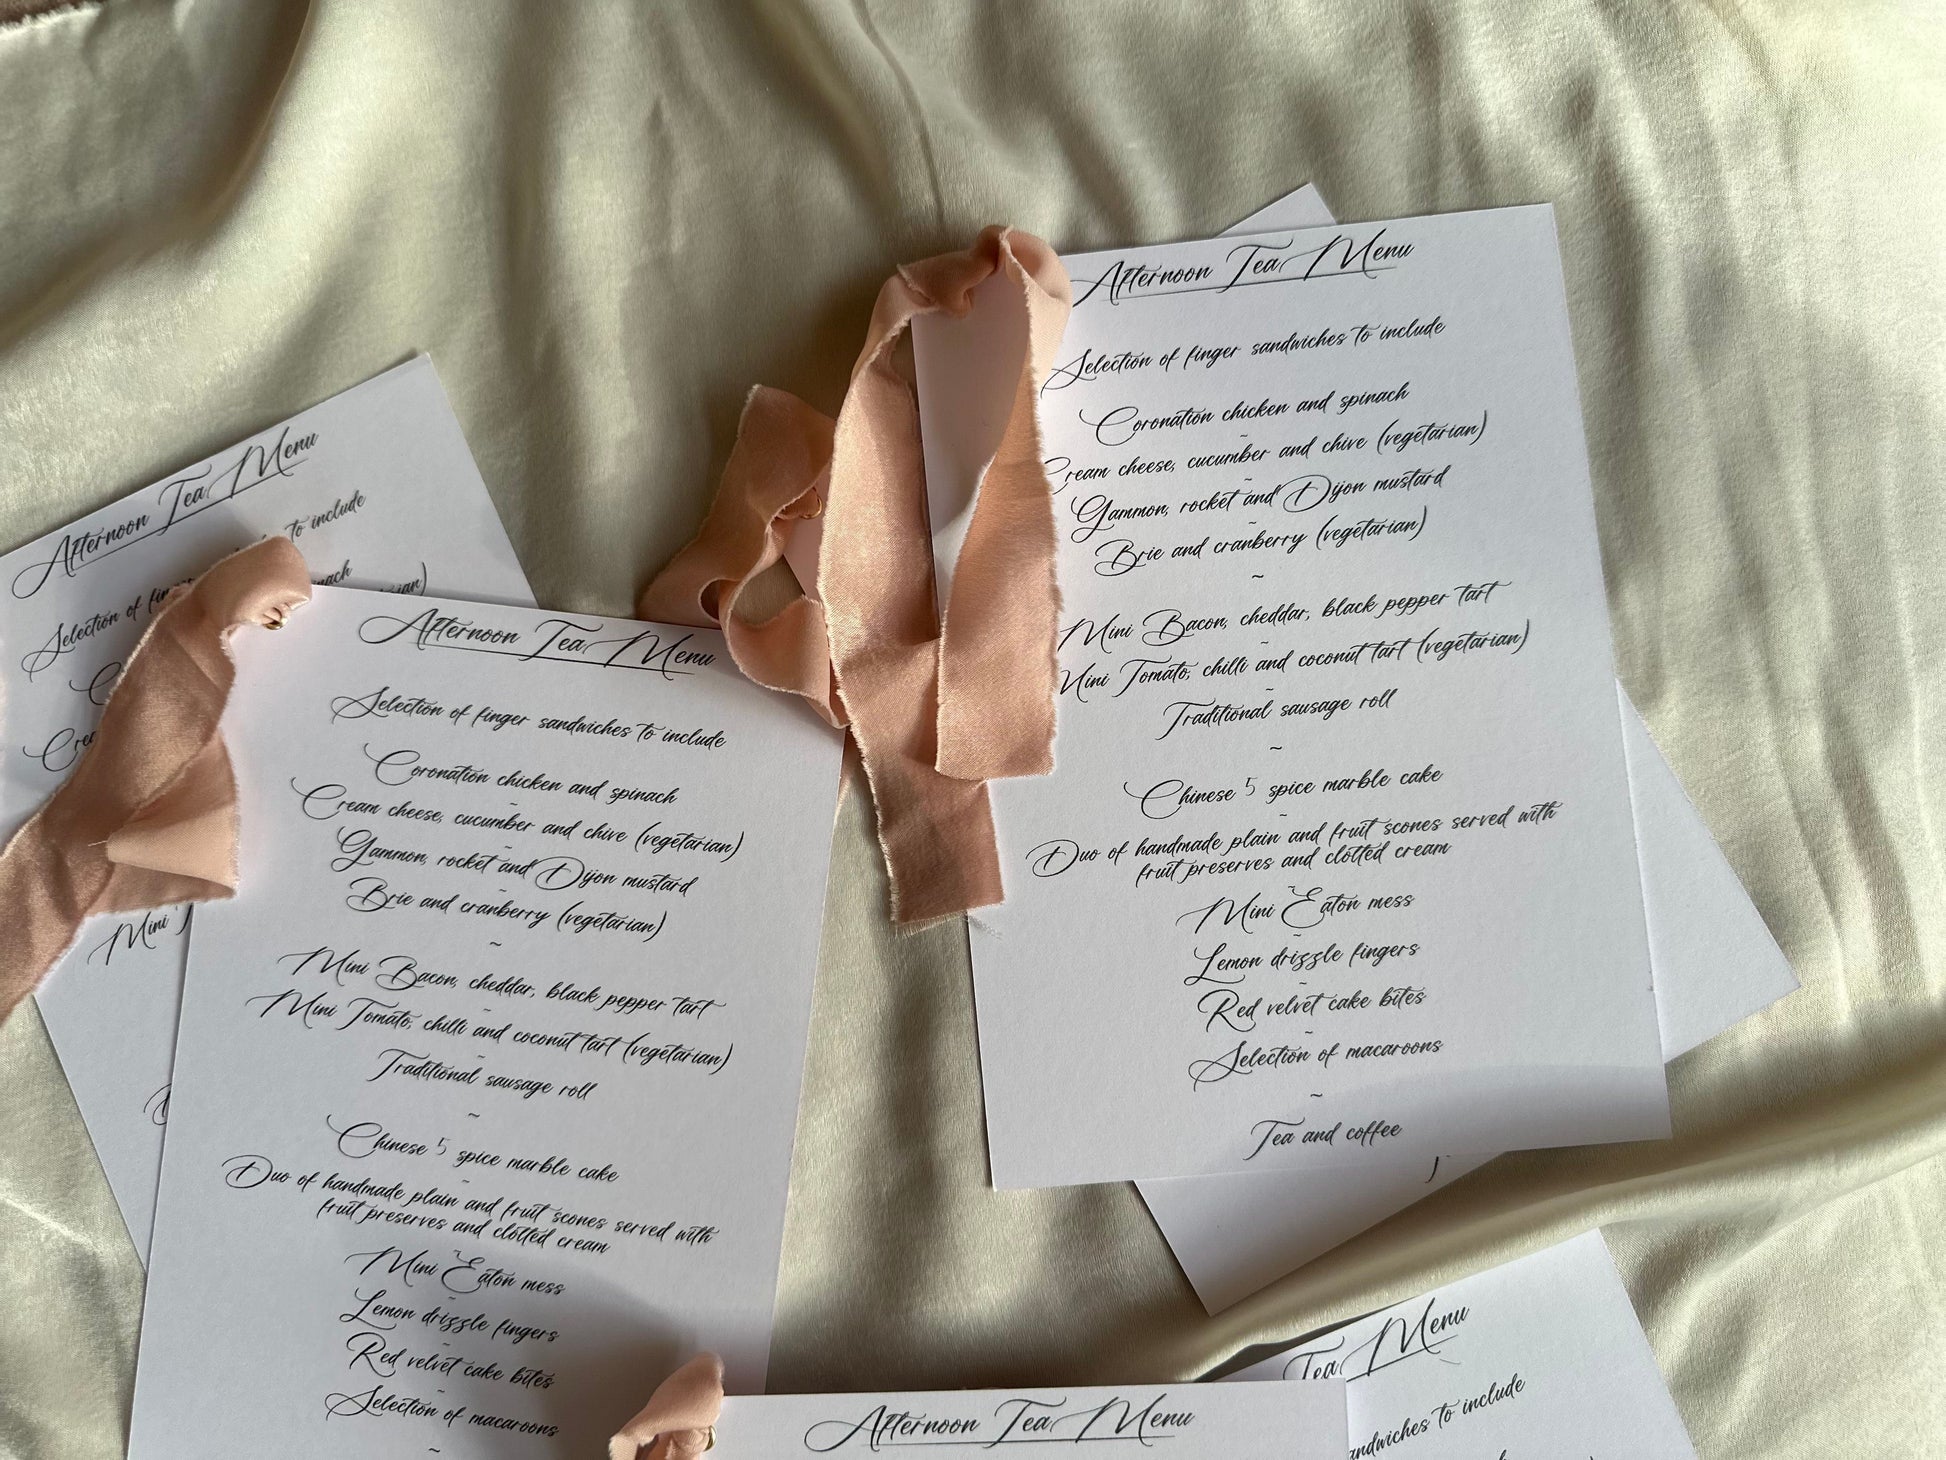 Afternoon Tea Menu
Selection of fin
to include
Afternoon Tea Menu
Selection of finger sandwiches to include
Coronation chicken and spinach
~
Cream cheese, cucumber and chive (vegetarian)
~
Gammon, rocket and Dijon mustard
~
Brie and cranberry (vegetarian)
~
Mini Bacon, cheddar, black pepper tart
~
Mini Tomato, chilli and coconut tart (vegetarian)
~
Traditional sausage roll
~
Chinese 5 spice marble cake
~
Duo of handmade plain and fruit scones served with
fruit preserves and clotted cream
~
Mini Eaton mess
~
Lemon drizzle fingers
~
Red velvet cake bites
~
Selection of macaroons
~
Afternoon Tea Menu
Selection of finger sandwiches to include
Coronation chicken and spinach
~
Cream cheese, cucumber and chive (vegetarian)
~
Gammon, rocket and Dijon mustard
~
Brie and cranberry (vegetarian)
~
Mini Bacon, cheddar, black pepper tart
~
Mini Tomato, chilli and coconut tart (vegetarian)
~
Traditional sausage roll
~
Chinese 5 spice marble cake
~
Duo of handmade plain and fruit scones served with
fruit preserves and clotted cream
~
Mini Eaton mess
~
Lemon drizzle fingers
~
Red velvet cake bites
~
Selection of macaroons
~
Tea and coffee
Mini
Afternoon Tea Menu
Tea Menu
andwiches to include